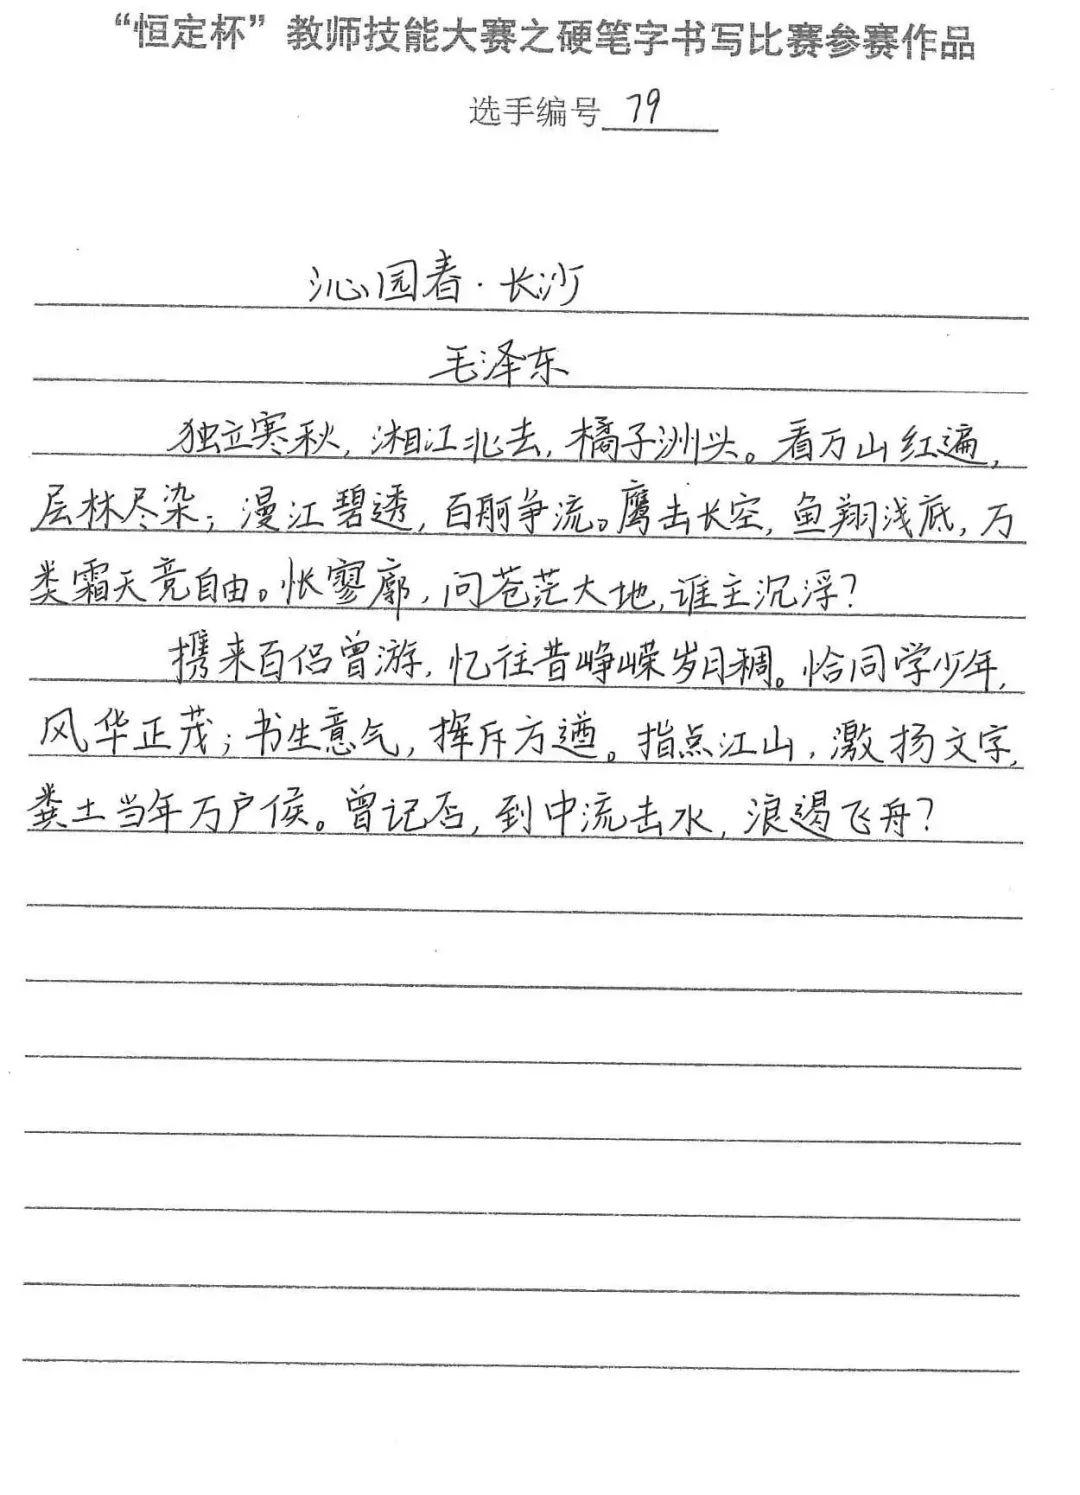 “恒定杯”教师技能大赛之硬笔字书写比赛参赛作品
选手编号 79
沁园春·长沙
毛泽东
独立寒秋,湘江北去,橘子洲头。看万山红遍,
层林尽染;漫江碧透,百舸争流。鹰击长空,鱼翔浅底,万
类霜天竞自由。怅寥廓,问苍茫大地,谁主沉浮?
携来百侣曾游,忆往昔峥嵘岁月稠。恰同学少年,
风华正茂;书生意气,挥斥方遒。指点江山,激扬文字,
粪土当年万户侯。曾记否,到中流击水,浪遏飞舟?